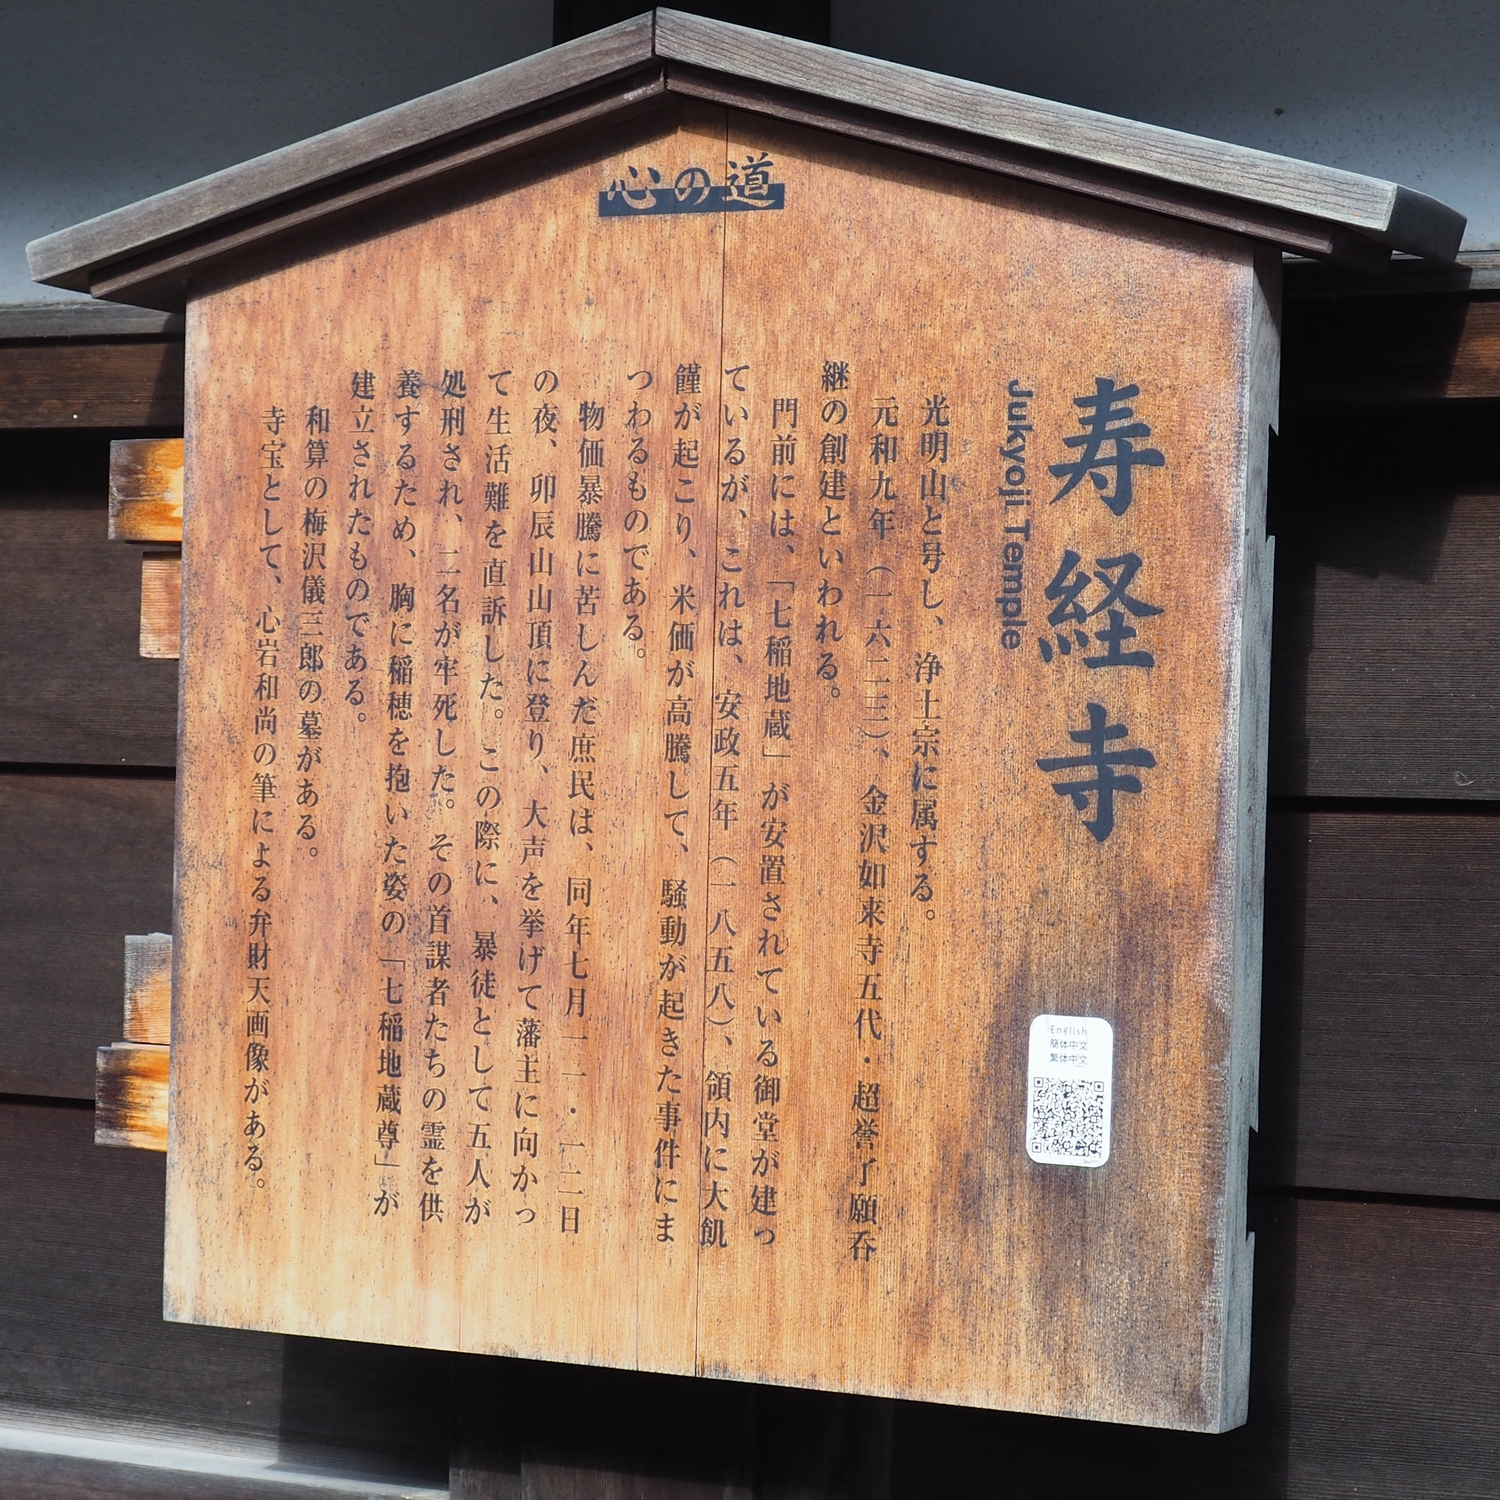 心の道
寿経寺
Jukyoji Temple
光明山と号し、浄土宗に属する。
元和九年（一六二三）、金沢如来寺五代・超誉了願呑
継の創建といわれる。
門前には、「七稲地蔵」が安置されている御堂が建っ
ているが、これは、安政五年（一八五八）、領内に大飢
饉が起こり、米価が高騰して、騒動が起きた事件にま
つわるものである。
物価暴騰に苦しんだ庶民は、同年七月一一・一二日
の夜、卯辰山山頂に登り、大声を挙げて藩主に向かっ
て生活難を直訴した。この際に、暴徒として五人が
処刑され、二名が牢死した。その首謀者たちの霊を供
養するため、胸に稲穂を抱いた姿の「七稲地蔵尊」が
建立されたものである。
和算の梅沢儀三郎の墓がある。
寺宝として、心岩和尚の筆による弁財天画像がある。
English
簡体中文
繁体中文